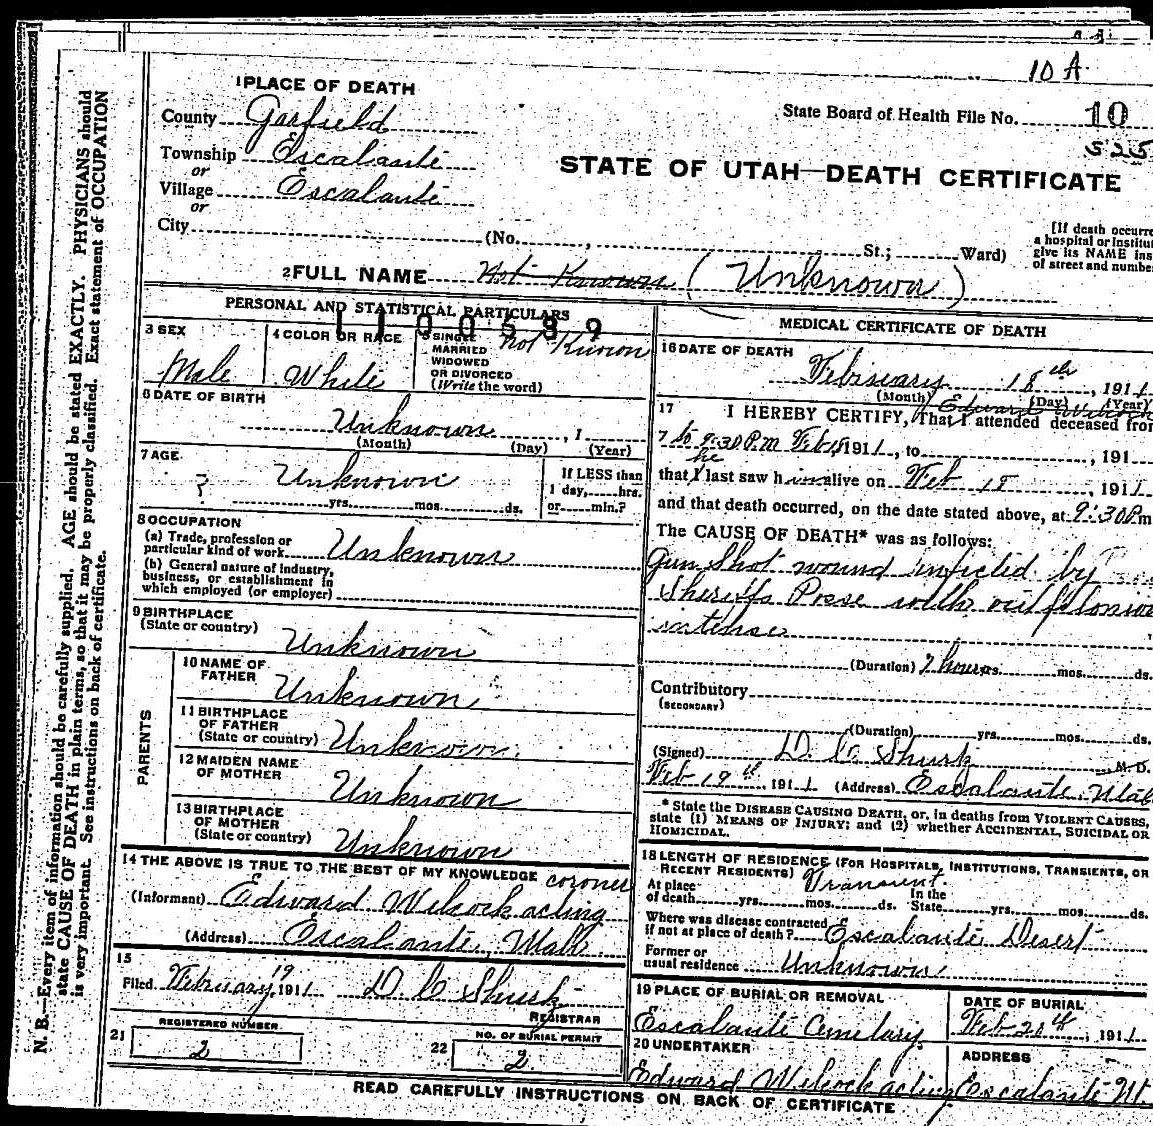 10 A
1 PLACE OF DEATH
County Garfield
State Board of Health File No. 10
525
Township Escalante
or
Village Escalante
or
STATE OF UTAH—DEATH CERTIFICATE
City (No. , St.; Ward)
[If death occurre
a hospital or institut
give its NAME ins
of street and numbe
2 FULL NAME Not Known (Unknown)
PERSONAL AND STATISTICAL PARTICULARS
1100589
3 SEX
Male
4 COLOR OR RACE
White
5 SINGLE
MARRIED
WIDOWED
OR DIVORCED
(Write the word)
Not Known
6 DATE OF BIRTH
Unknown , 1
(Month) (Day) (Year)
7 AGE
? Unknown
yrs. mos. ds.
If LESS than
1 day, hrs.
or min.?
8 OCCUPATION
(a) Trade, profession or
particular kind of work Unknown
(b) General nature of industry,
business, or establishment in
which employed (or employer)
9 BIRTHPLACE
(State or country)
Unknown
PARENTS
10 NAME OF
FATHER
Unknown
11 BIRTHPLACE
OF FATHER
(State or country) Unknown
12 MAIDEN NAME
OF MOTHER
Unknown
13 BIRTHPLACE
OF MOTHER
(State or country) Unknown
14 THE ABOVE IS TRUE TO THE BEST OF MY KNOWLEDGE coroner
(Informant) Edward Wilcock acting
(Address) Escalante, Utah
15
Filed February 19 1911 D C Shurtz
REGISTRAR
21 REGISTERED NUMBER
2
22 NO. OF BURIAL PERMIT
2
MEDICAL CERTIFICATE OF DEATH
16 DATE OF DEATH
February 18th , 1911
(Month) (Day) (Year)
17 I HEREBY CERTIFY, That I attended deceased from
Edward Wilcock
7 to 9:30 P.m Feb 18 1911, to , 191
he
that I last saw him alive on Feb 18 , 1911
and that death occurred, on the date stated above, at 9:30 P.m
The CAUSE OF DEATH* was as follows:
Gun Shot wound inflicted by
Sheriffs Posse with out felonious
intense
(Duration) 7 hours yrs. mos. ds.
Contributory
(SECONDARY)
(Duration) yrs. mos. ds.
(Signed) D C Shurtz M. D.
Feb 19th, 1911 (Address) Escalante, Utah
* State the DISEASE CAUSING DEATH, or, in deaths from VIOLENT CAUSES,
state (1) MEANS OF INJURY; and (2) whether ACCIDENTAL, SUICIDAL OR
HOMICIDAL.
18 LENGTH OF RESIDENCE (FOR HOSPITALS, INSTITUTIONS, TRANSIENTS, OR
RECENT RESIDENTS) Transient
At place
of death yrs. mos. ds.
In the
State yrs. mos. ds.
Where was disease contracted
if not at place of death? Escalante Desert
Former or
usual residence Unknown
19 PLACE OF BURIAL OR REMOVAL
Escalante Cemetary
DATE OF BURIAL
Feb 20th, 1911
20 UNDERTAKER
Edward Wilcock acting
ADDRESS
Escalante Ut
READ CAREFULLY INSTRUCTIONS ON BACK OF CERTIFICATE
N. B.—Every item of information should be carefully supplied. AGE should be stated EXACTLY. PHYSICIANS should
state CAUSE OF DEATH in plain terms, so that it may be properly classified. Exact statement of OCCUPATION
is very important. See instructions on back of certificate.